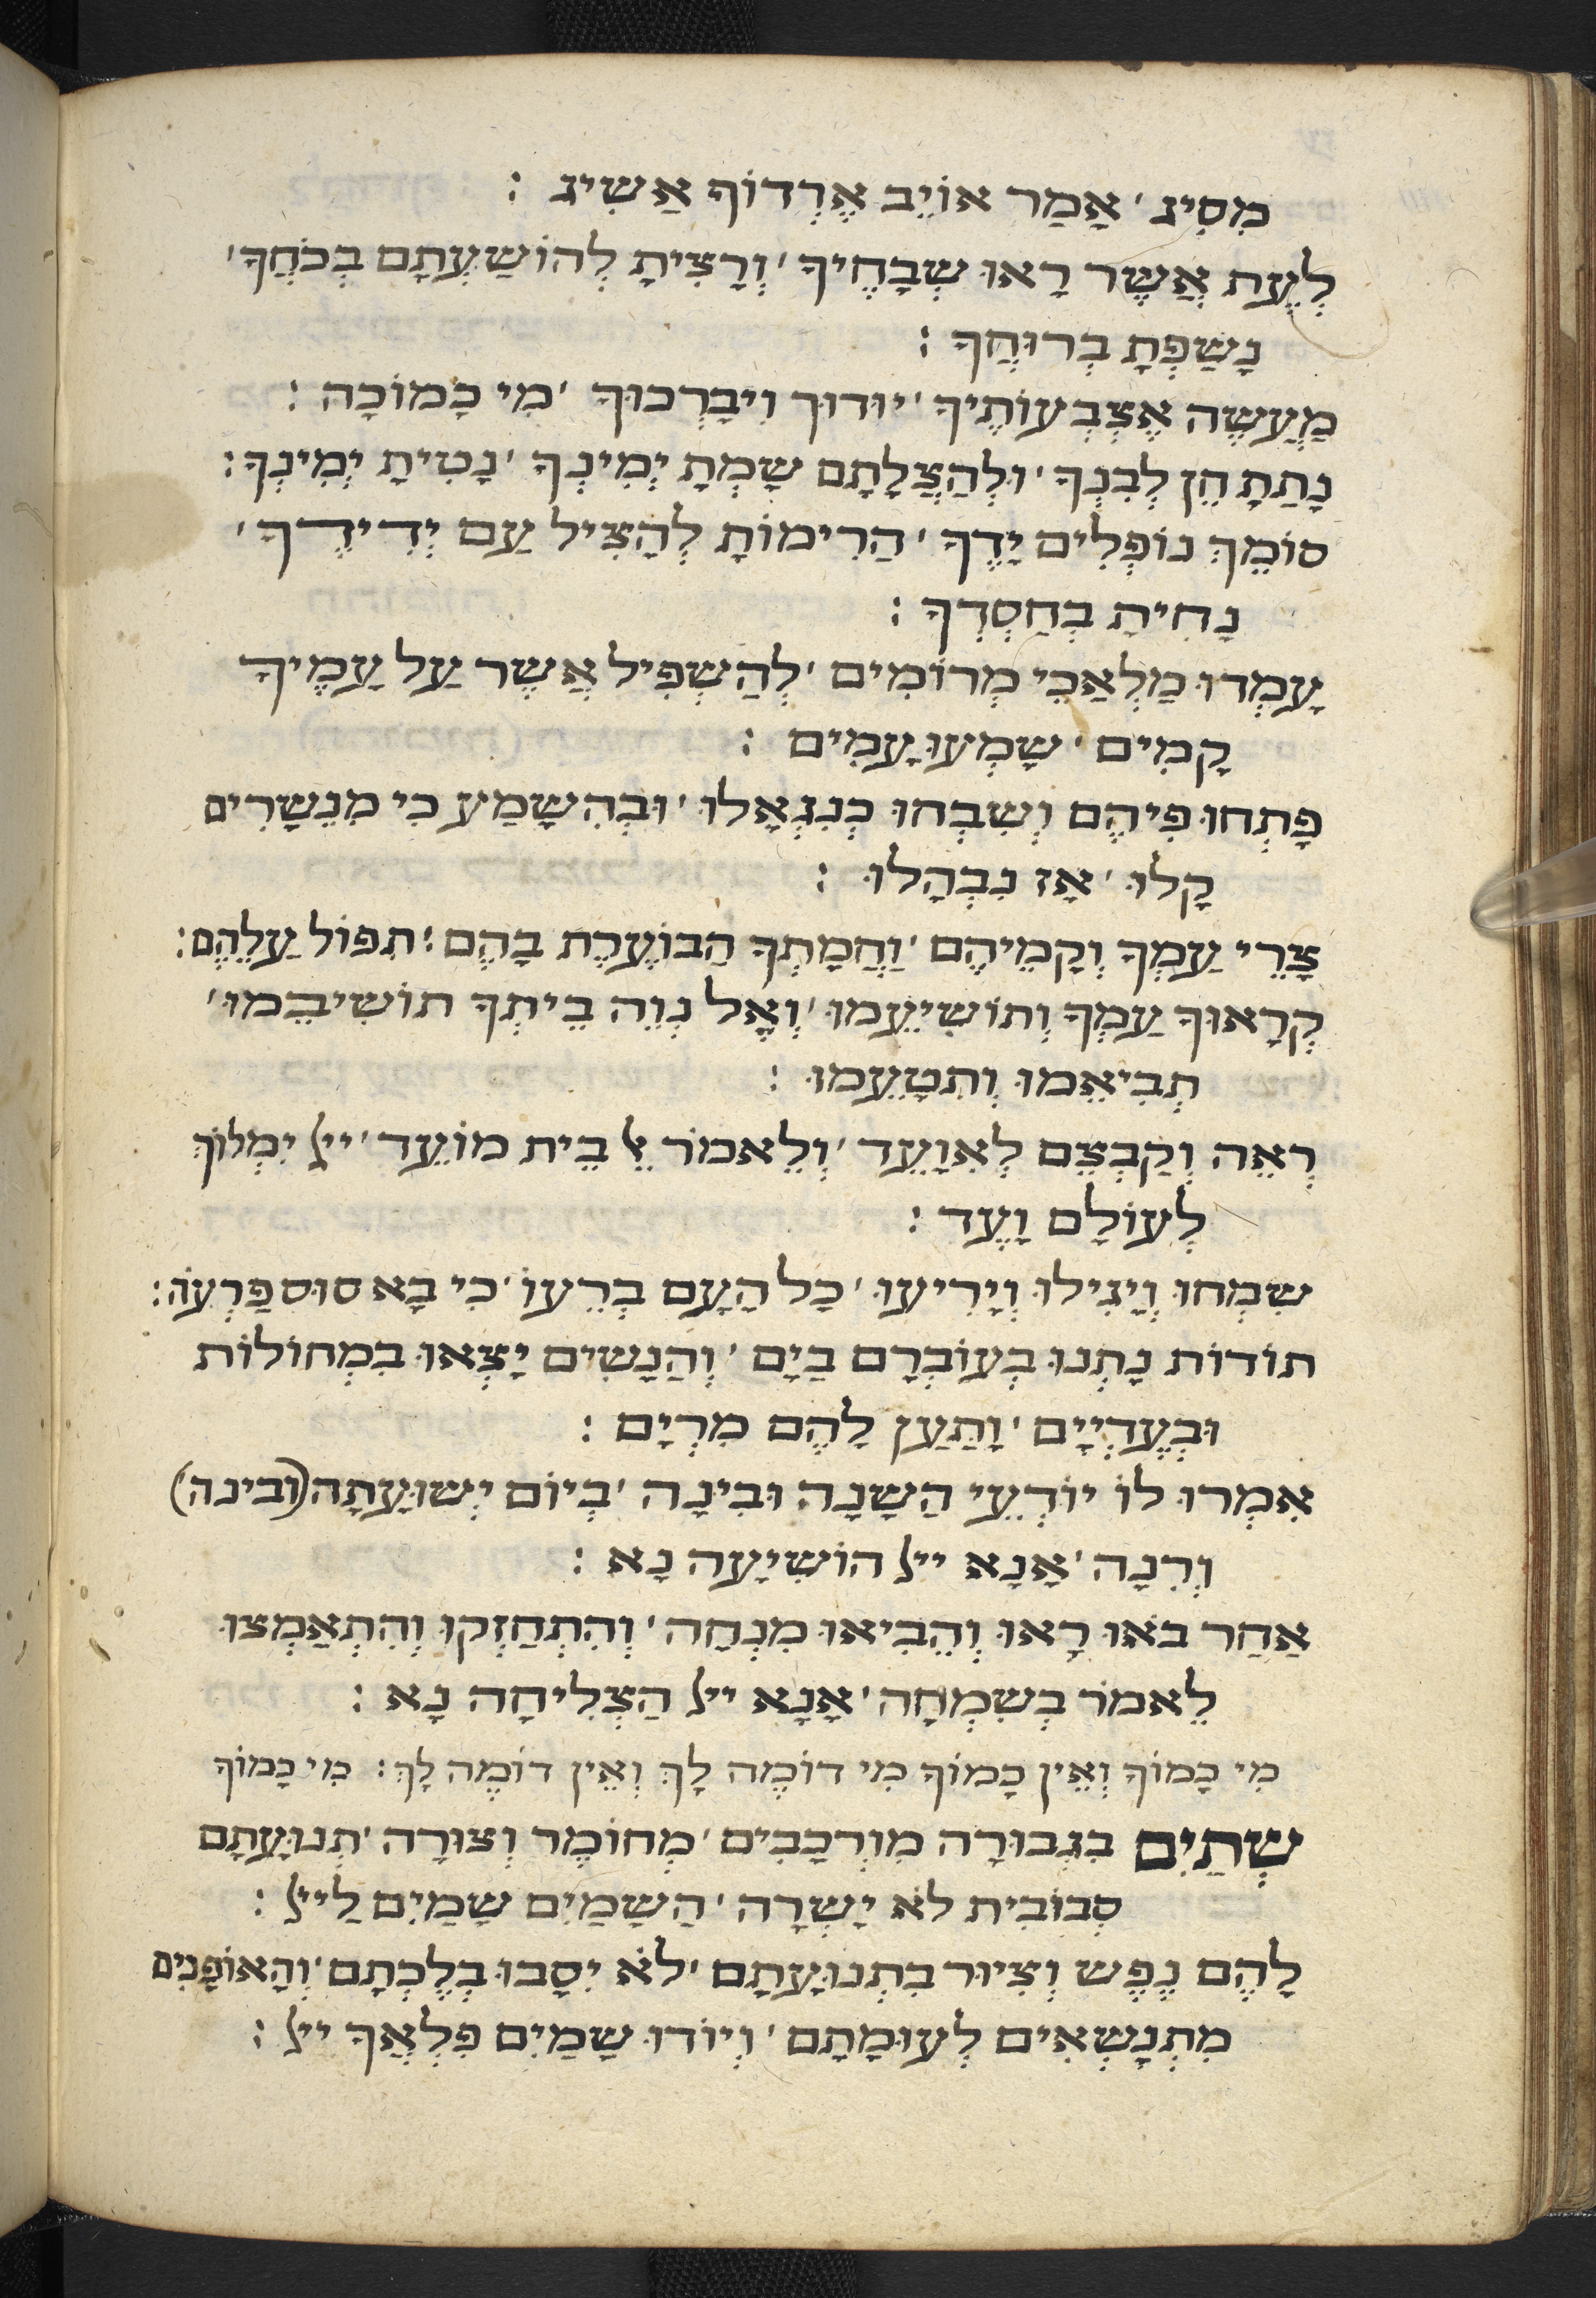 מִסִיג ׳ אָמַר אוֹיֵב אֶרְדוֹף אַשִיג :
לְעֵת אֲשֶר רָאוּ שְבָחֶיךָ ׳ וְרָצִיתָ לְהוֹשַעְתָם בְכֹחֲךָ ׳
נָשַפְתָ בְרוּחֲךָ :
מַעֲשֶה אֶצְבְעוֹתֶיךָ ׳ יוּדוּך וִיבָרְכוּךָ ׳ מִי כָמוֹכָה :
נָתַתָ חֵן לְבִנְךָ ׳ וּלְהַצָלָתָם שָמְתָ יְמִינְךָ ׳ נָטִיתָ יְמִינְךָ :
סוֹמֵךְ נוֹפְלִים יָדֶךָ ׳ הַרִימוֹתָ לְהַצִיל עַם יְדִידֶךָ ׳
נָחִיתָ בְחַסְדְךָ :
עָמְדוּ מַלְאַכֵי מְרוֹמִים ׳ לְהַשְפִיל אֲשֶר עַל עַמֶיךָ
קָמִים ׳ שָמְעוּ עָמִים :
פָתְחוּ פִיהֶם וְשִבְחוּ כְנִגְאָלוּ ׳ וּבְהִשָמַע כִי מִנְשָרִים
קָלוּ ׳ אָז נִבְהָלוּ :
צָרֵי עַמְךָ וְקָמֵיהֶם ׳ וַחֲמָתְךָ הַבוֹעֶרֶת בָהֶם : תִפוֹל עַלֵהֶם :
קְרָאוּךָ עַמְךָ וְתוֹשִיעֵמוּ ׳ וְאֶל נְוֵה בֵיתְךָ תוֹשִיבֵמוּ ׳
תְבִיאֵמוּ וְתִטָעֵמוּ :
רְאֵה וְקַבְצֵם לְאִוָעֵד ׳ וְלֵאמֹר אֵל בֵית מוֹעֵד ׳ ייל יִמְלוֹךְ
לְעוֹלָם וָעֶד :
שִמְחוּ וְיָגִילוּ וְיָרִיעוּ ׳ כָל הָעָם בְרֵעוֹ ׳ כִי בָא סוּס פַרְעֹה :
תוֹדוֹת נָתְנוּ בְעוֹבְרָם בַיָם ׳ וְהַנָשִים יָצְאוּ בִמְחוֹלוֹת
וּבְעֶדְיָיָם ׳ וָתַעַן לָהֶם מִרְיָם :
אִמְרוּ לוֹ יוֹדְעֵי הַשָנָה וּבִינָה ׳ בְיוֹם יְשוּעָתָה (ובינה)
וְרִנָה ׳ אָנָא ייל הוֹשִיעָה נָא :
אַחַר בֹאוּ רָאוּ וְהֵבִיאוּ מִנְחָה ׳ וְהִתְחַזְקוּ וְהִתְאַמְצוּ
לֵאמֹר בְשִמְחָה ׳ אָנָא ייל הַצְלִיחָה נָא :
מִי כָמוֹךָ וְאֵין כָמוֹךָ מִי דוֹמֶה לָךְ וְאֵין דוֹמֶה לָךְ : מִי כָמוֹךָ
שְתַיִם בִגְבוּרָה מוּרְכָבִים ׳ מְחוֹמֶר וְצוּרָה ׳ תְנוּעָתָם
סִבוֹבִית לֹא יָשְרָה ׳ הַשָמַיִם שָמַיִם לַייל :
לָהֶם נֶפֶש וְצִיוּר בִתְנוּעָתָם ׳ לֹא יִסָבוּ בְלֶכְתָם ׳ וְהָאוֹפָנִים
מִתְנָשְאִים לְעוּמָתָם ׳ וְיוֹדוּ שָמַיִם פִלְאֲךָ ייל :